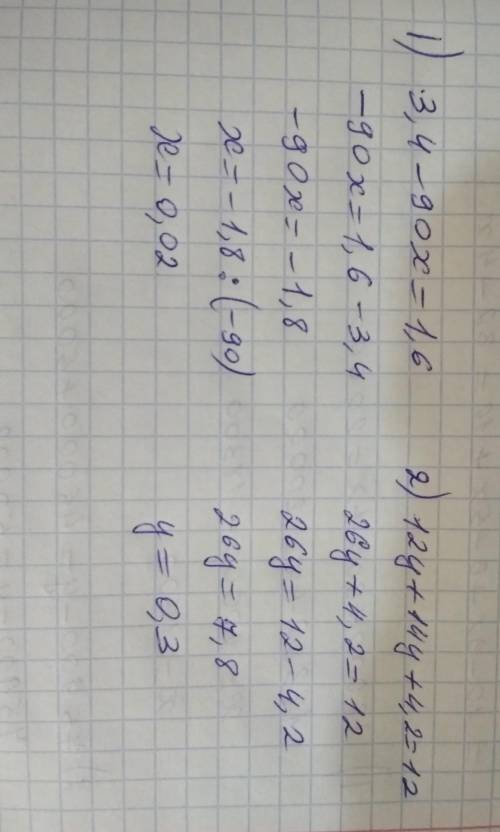 1) 3,4 - 90x = 1,6
-90x = 1,6 - 3,4
-90x = -1,8
x = -1,8 : (-90)
x = 0,02
2) 12y + 14y + 4,2 = 12
26y + 4,2 = 12
26y = 12 - 4,2
26y = 7,8
y = 0,3